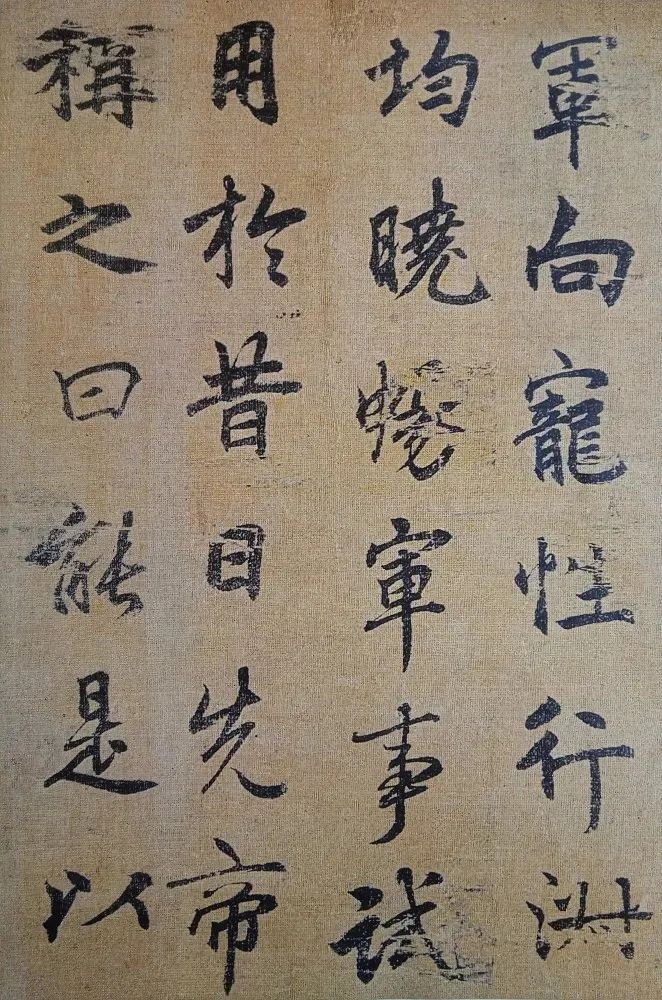 軍向寵性行淑
均曉暢軍事試
用於昔日先帝
稱之曰能是以